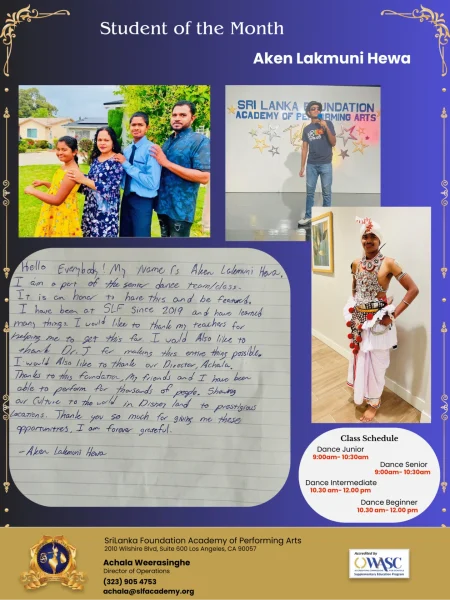 Student of the Month
Aken Lakmuni Hewa
SRI LANKA FOUNDATION
ACADEMY OF PERFORMING ARTS
Hello Everybody! My Name is Aken Lakmuni Hewa.
I am a part of the senior dance team/class.
It is an Honor to have this and be featured.
I have been at SLF Since 2019 and have learned
many things. I would like to thank my teachers for
helping me to get this far. I would Also like to
thank Dr. J for making this entire thing possible.
I would Also like to thank our Director, Achala.
Thanks to this foundation, My friends and I have been
able to perform for thousands of people, Showing
our Culture to the world in Disney land to prestigious
locations. Thank you so much for giving me these
opportunities, I am forever grateful.
- Aken Lakmuni Hewa
Class Schedule
Dance Junior
9:00am- 10:30am
Dance Senior
9:00am- 10:30am
Dance Intermediate
10.30 am- 12.00 pm
Dance Beginner
10.30 am- 12.00 pm
SriLanka Foundation Academy of Performing Arts
2010 Wilshire Blvd, Suite 600 Los Angeles, CA 90057
Achala Weerasinghe
Director of Operations
(323) 905 4753
achala@slfacademy.org
Accredited by
WASC
Supplementary Education Program